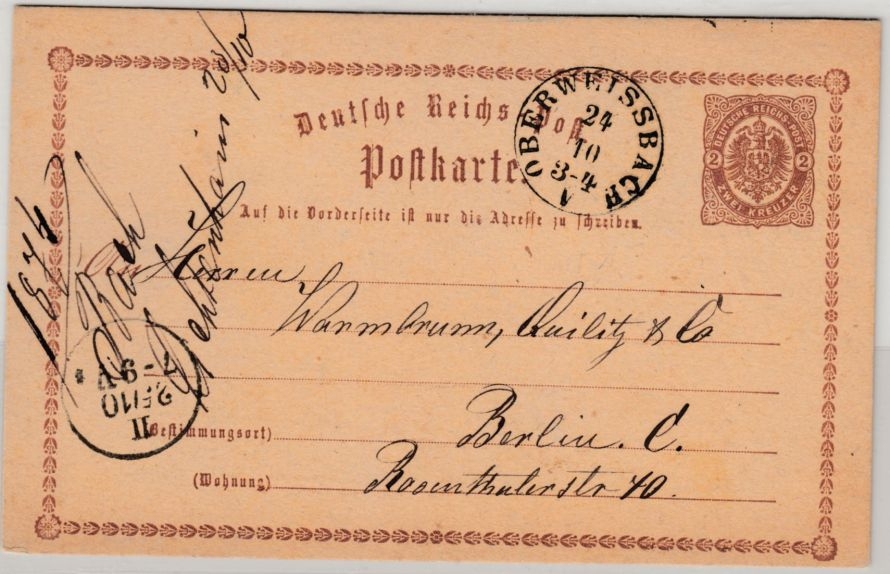 Deutsche Reichs-Post
Postkarte.
Auf die Vorderseite ist nur die Adresse zu schreiben.
OBERWEISSBACH
24
10
3-4
DEUTSCHE REICHS-POST
2 2
ZWEI KREUZER
An Herren
Warmbrunn, Quilitz & Co
(Bestimmungsort) Berlin. C.
(Wohnung) Rosenthalerstr 40.
1874
Bach
II
25/10
7-9